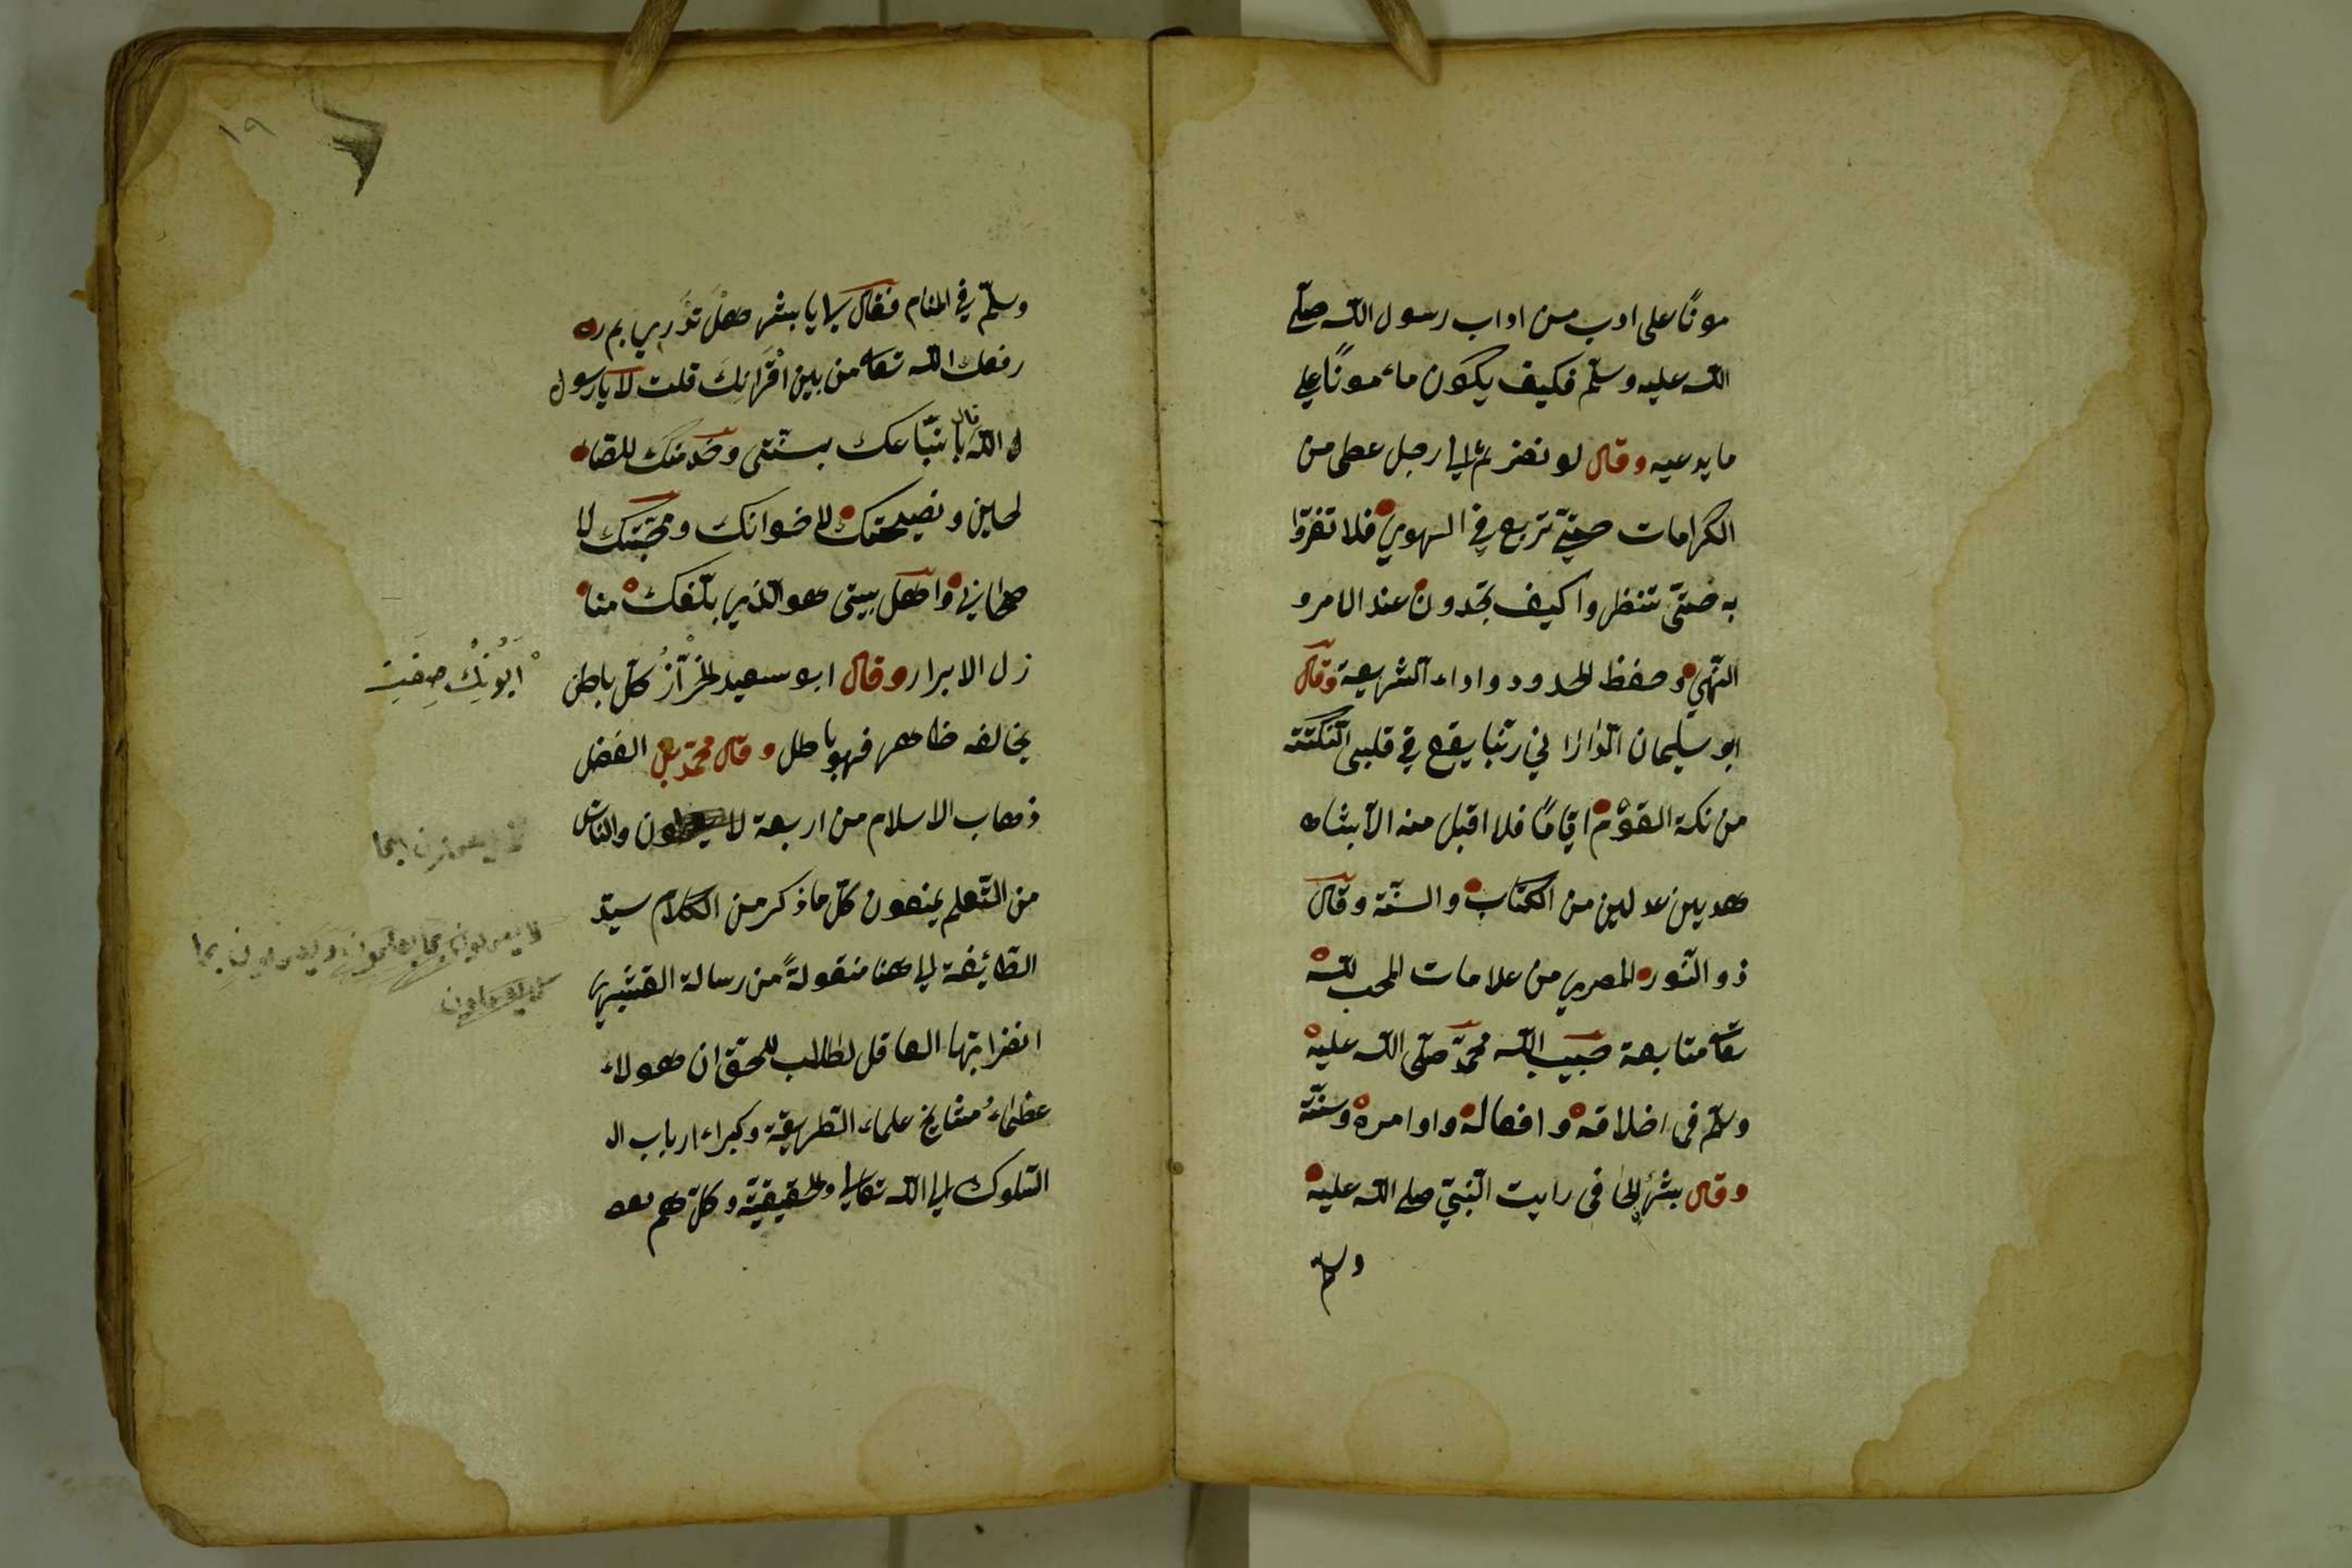 مونًا على ادب من اداب رسول الله صلى
الله عليه وسلّم فكيف يكون ماءمونًا على
ما يدعيه وقال لو نظرتم الى رجل عطى من
الكرامات حتى تربع في الهوي فلا تغترّوا
به حتّى تنظروا كيف تجدون عند الامر و
النّهي و حفظ الحدود و اداء الشريعة وقال
ابو سليمان الدّارانى ربّما يقع في قلبى النّكتة
من نكتة القوم ايّامًا فلا اقبل منه الاّ بشاه
هدين عدلين من الكتاب والسنّة وقال
ذو النّون المصري من علامات المحب لله
تعا متابعة حبيب الله محمّد صلّى الله عليه
وسلّم فى اخلاقه و افعاله واوامره وسننه
وقال بشر الحافى رايت النّبىّ صلى الله عليه
وسلم
١٩
وسلّم في المنام فقال لى يا بشر هل تدري بم ر
رفعك الله تعا من بين اقرانك قلت لا يا رسول
ل الله قال باتّباعك بسنّتى وخدمتك للصّا
لحين و نصيحتك لاخوانك ومحبّتك لا
صحابى واهل بيتى هو الذي بلّغك منا
زل الابرار وقال ابو سعيد الخرّاز كلّ باطن
يخالفه ظاهر فهو باطل وقال محمّد بن الفضل
ذهاب الاسلام من اربعة لا يعملون والنّاس
من التّعلم يمنعون كلّ ما ذكر من الكلام سيّد
الطّائفة الى هنا منقولة من رسالة القشيرى
انظر ايّها العاقل لطالب للحقّ ان هولاء
عظماء مشايخ علماء الطّريقة وكبراء ارباب ال
السّلوك الى الله تعالى والحقيقيّة و كلّهم
لا يعملون بما يعلمون ويعملون بما
لا يعلمون